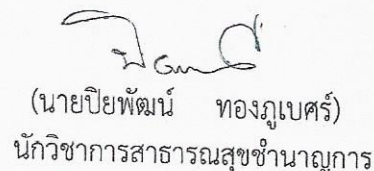 (นายปิยพัฒน์ ทองภูเบศร์)
นักวิชาการสาธารณสุขชำนาญการ